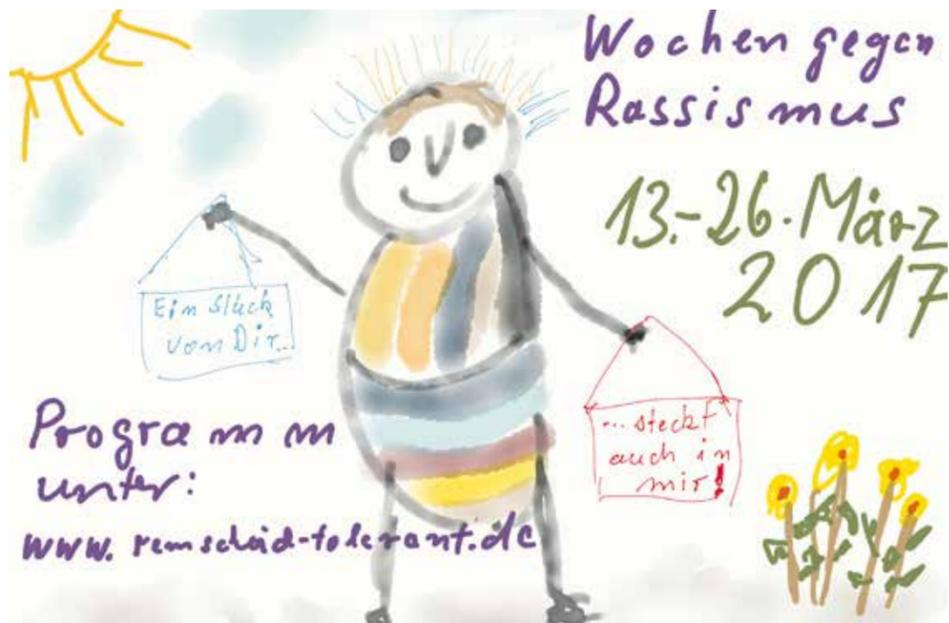 Wochen gegen
Rassismus
13.-26. März
2017
Ein Stück
von Dir...
... steckt
auch in
mir!
Programm
unter:
www.remscheid-tolerant.de